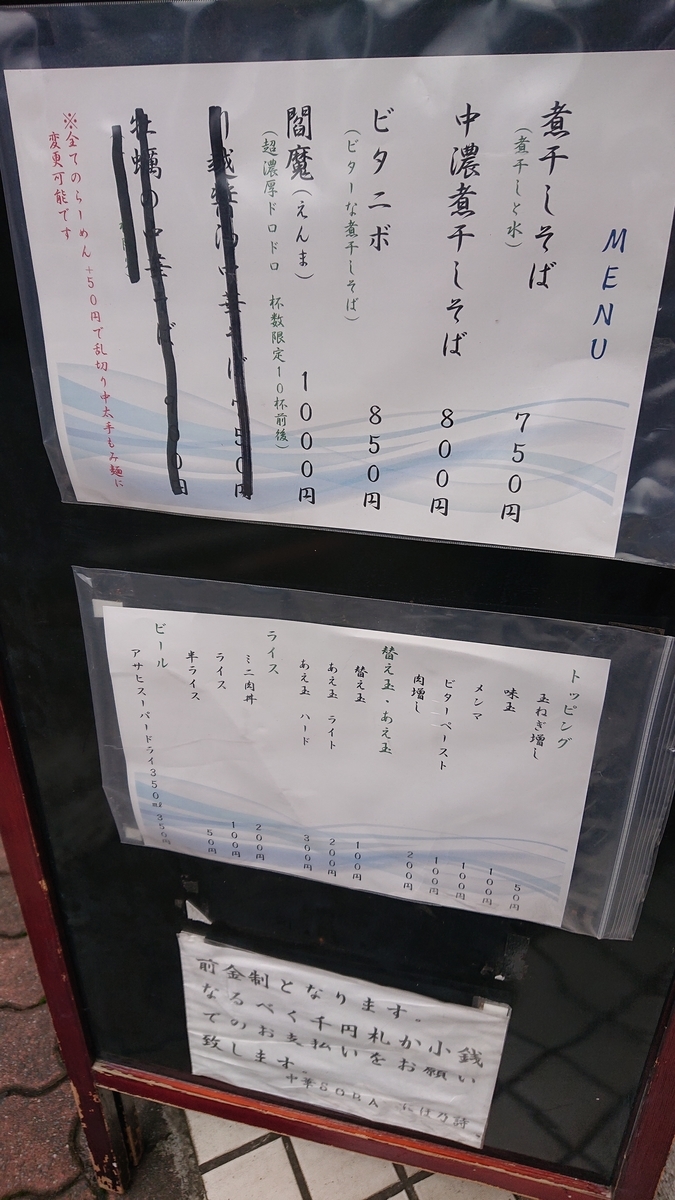 MENU
煮干しそば 750円
(煮干しと水)
中濃煮干しそば 800円
ビタニボ 850円
(ビターな煮干しそば)
閻魔(えんま) 1000円
(超濃厚ドロドロ 杯数限定10杯前後)
牡蠣の中華そば
※全てのらーめん+50円で乱切り中太手もみ麺に
変更可能です
トッピング
玉ねぎ増し 50円
味玉 100円
メンマ 100円
ビターペースト 100円
肉増し 200円
替え玉・あえ玉
替え玉 100円
あえ玉 ライト 200円
あえ玉 ハード 300円
ライス
ミニ肉丼 200円
ライス 100円
半ライス 50円
ビール
アサヒスーパードライ350㎖ 350円
前金制となります。
なるべく千円札か小銭
でのお支払いをお願い
致します。
中華SOBA にぼ乃詩